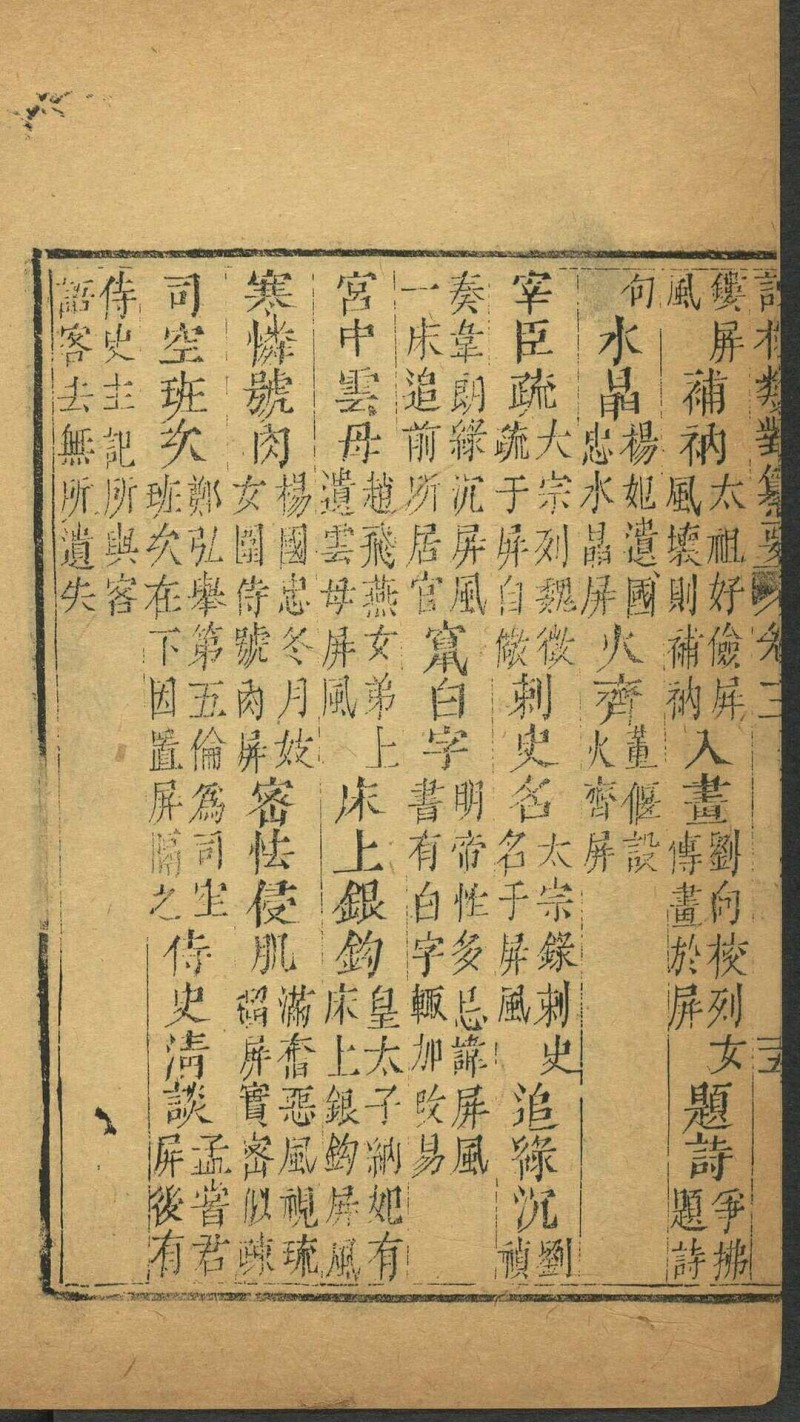 詩材類對纂要 卷三 五
鏤屏風補衲太祖好儉屏風壞則補衲入畫劉向校列女傳畫於屏題詩爭拂題詩
句水晶楊妃遺國忠水晶屏火齊董偃設火齊屏
宰臣疏大宗列魏徵疏于屏自儆刺史名太宗錄刺史名于屏風追綠沉劉禎
奏韋朗綠沉屏風一床追前所居官竄白字明帝性多忌諱屏風書有白字輒加改易
宮中雲母趙飛燕女弟上遺雲母屏風床上銀鈎皇太子納妃有床上銀鈎屏風
寒憐號肉楊國忠冬月妓女圍侍號肉屏密怯侵肌滿奮惡風視琉璃屏實密似疎
司空班次鄭弘舉第五倫為司空班次在下因置屏隔之侍史清談孟嘗君屏後有
侍史主記所與客語客去無所遺失